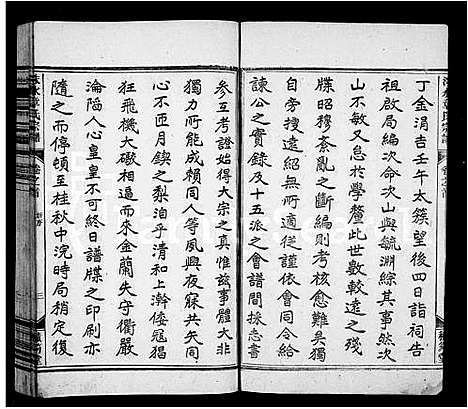 丁金涓吉壬午太簇望後四日詣祠告
祖啟局編次命次山與毓淵綜其事然次
山不敏又怠於學釐此世數較遠之殘
牒昭穆紊亂之斷編則考核愈難矣獨
諫公之實錄及十五派之會譜間採忞書
參互考證始得大宗之真惟玆事體大非
獨力所能成賴同人等夙興夜寐共矢
心不匝月鍥之梨泊乎清和上澣倭寇猖
狂飛機大礮相逼而來金蘭失守衢嚴
淪陷人心皇皇不可終日譜牒之印刷亦
隨之而停頓至桂秋中浣時局稍定復